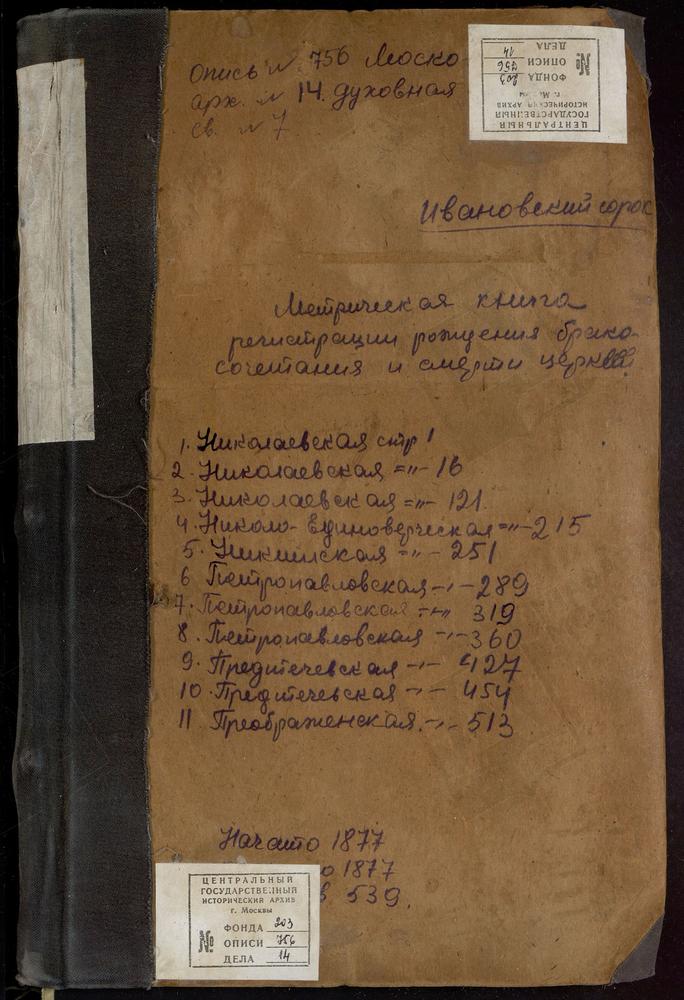 Опись № 756 Моско
арх. № 14. духовная
св. № 7
ЦЕНТРАЛЬНЫЙ
ГОСУДАРСТВЕННЫЙ
ИСТОРИЧЕСКИЙ АРХИВ
г. Москвы
ФОНДА 203
№ ОПИСИ 756
ДЕЛА 14
Ивановский сорок
Метрическая книга
регистрации рождения брако-
сочетания и смерти церквей
1. Николаевская стр 1
2. Николаевская =„- 16
3. Николаевская =„- 121
4. Николо-Единоверческая =„- 215
5. Никитская =„- 251
6 Петропавловская -„- 289
7. Петропавловская -„- 319
8. Петропавловская -„- 360
9. Предтечевская -„- 427
10. Предтечевская -„- 454
11 Преображенская. -„- 513
Начато 1877
о 1877
в 539.
ЦЕНТРАЛЬНЫЙ
ГОСУДАРСТВЕННЫЙ
ИСТОРИЧЕСКИЙ АРХИВ
г. Москвы
ФОНДА 203
№ ОПИСИ 756
ДЕЛА 14